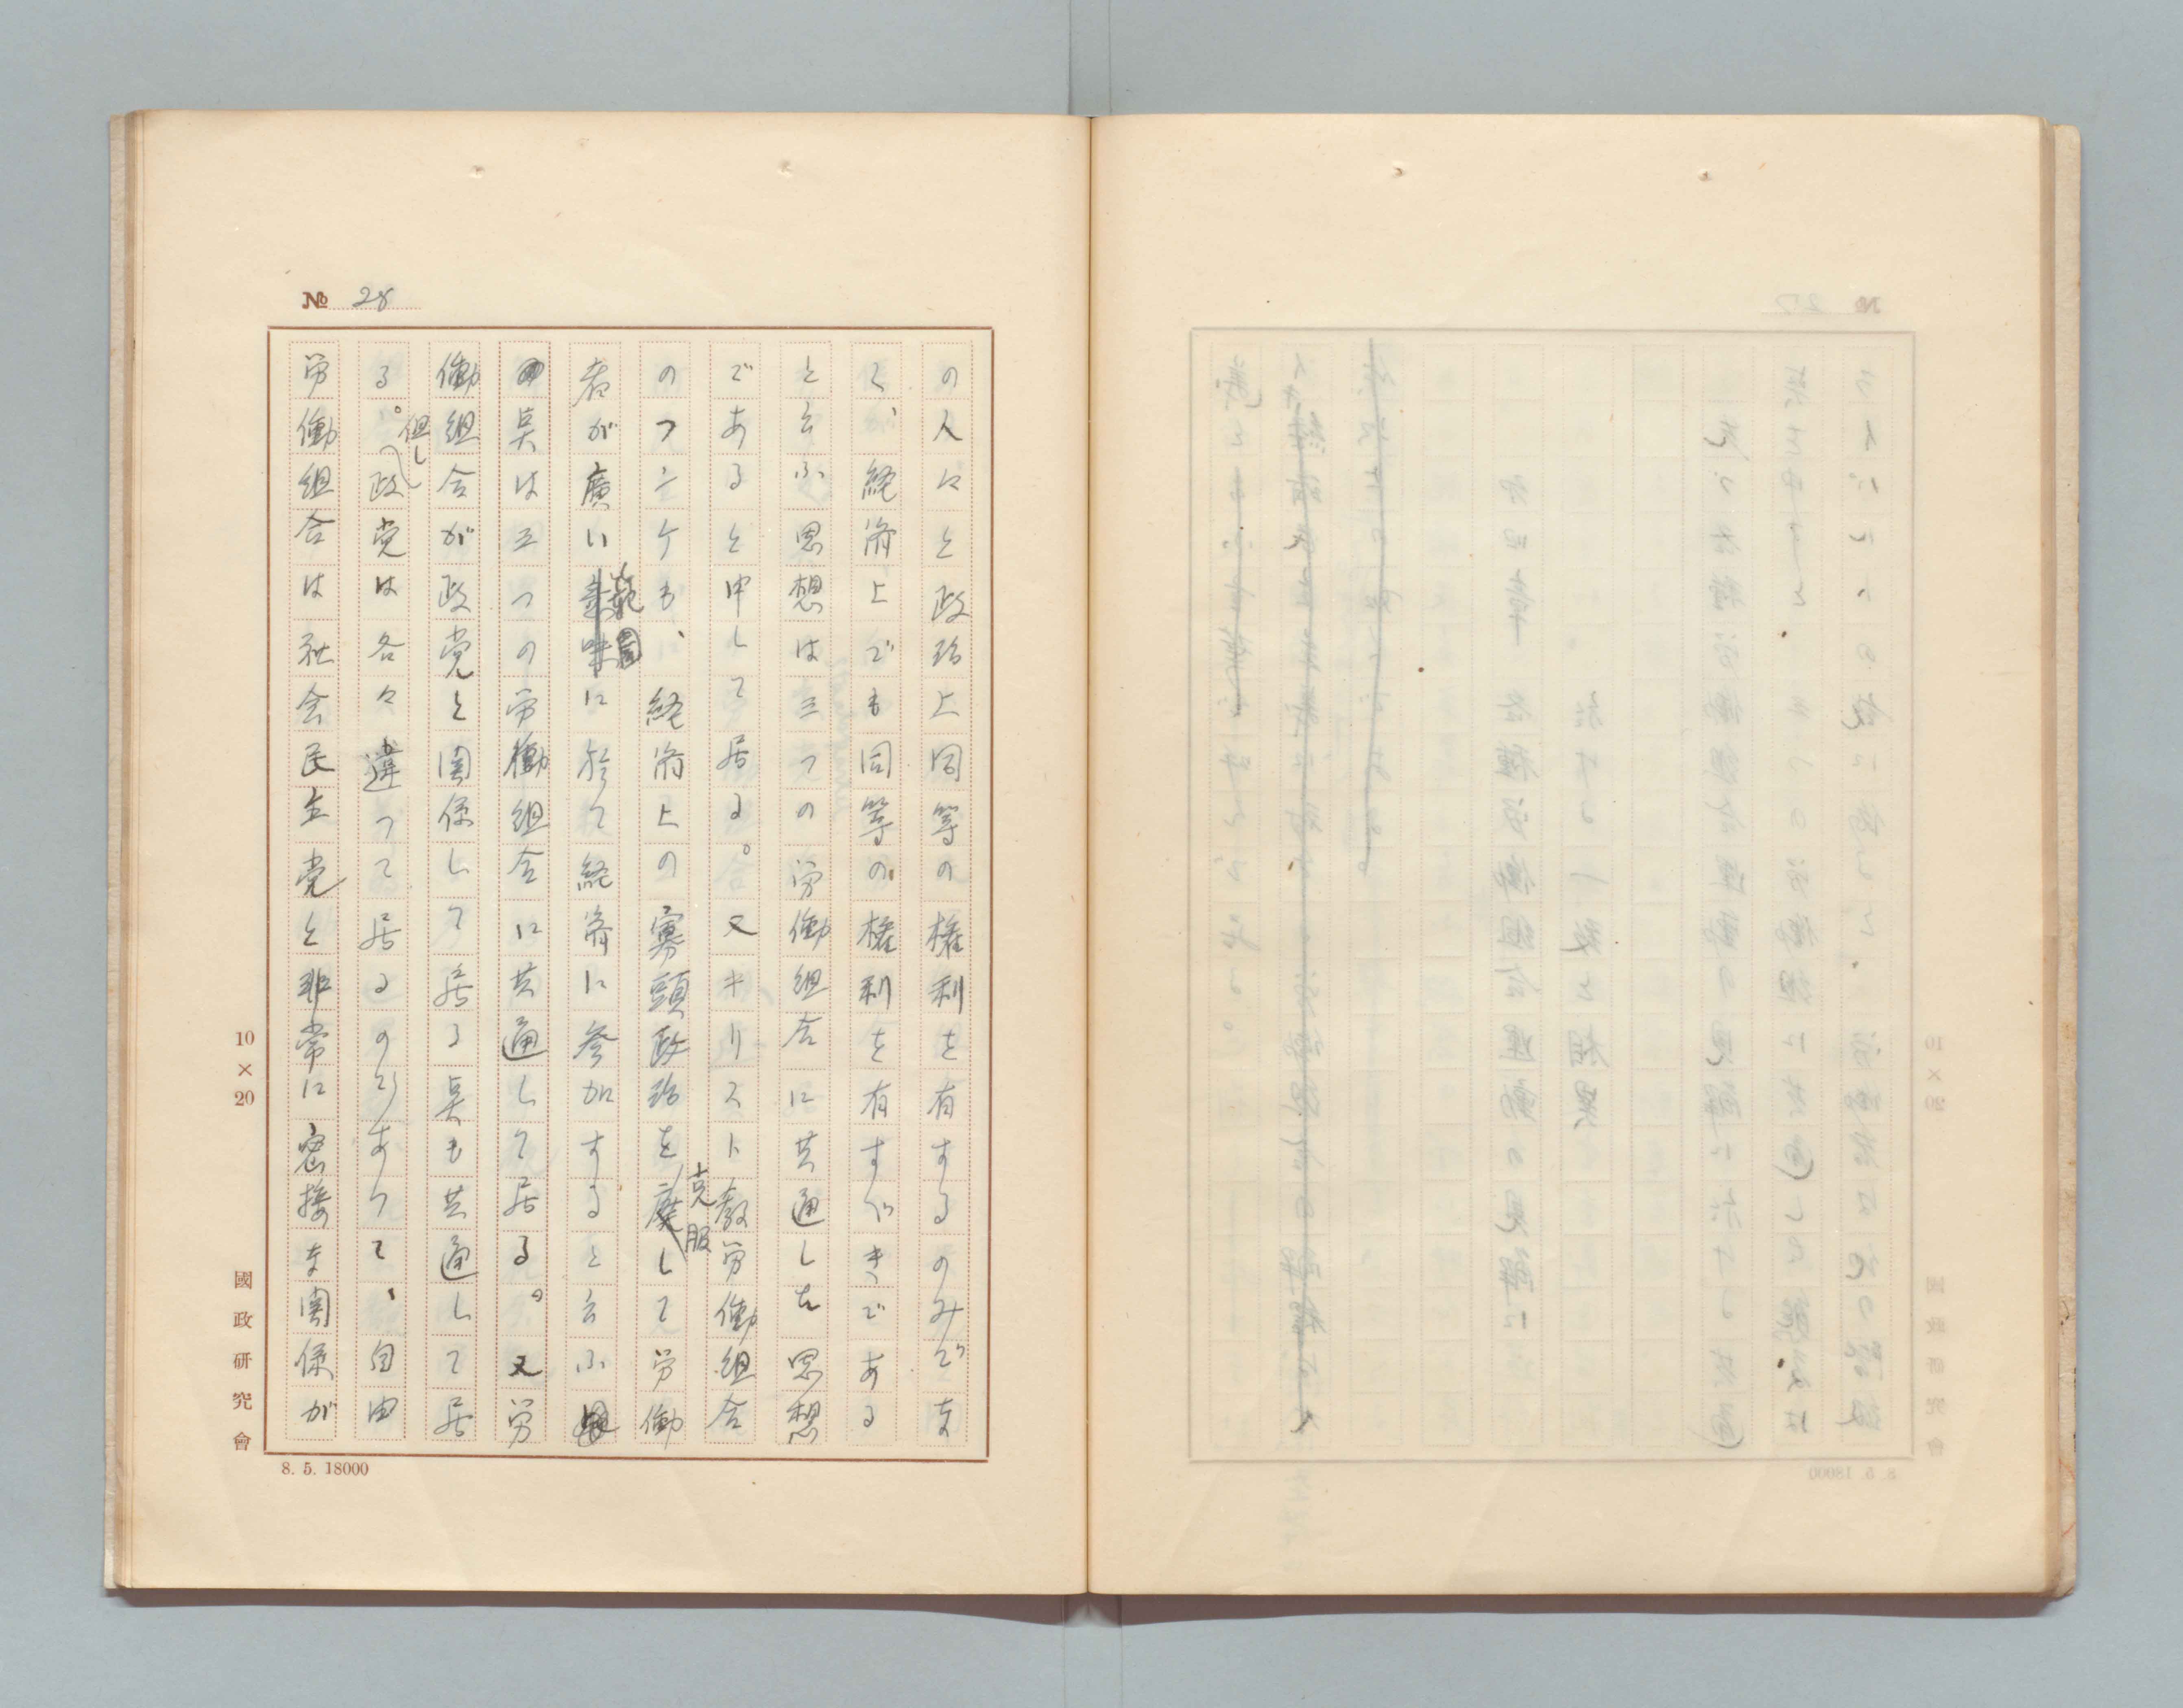 № 28
の人々と政治上同等の権利を有するのみでな
く、経済上でも同等の権利を有すべきである
と云ふ思想は三つの労働組合に共通した思想
であると申して居る。又キリスト教労働組合
のつミケも、経済上の寡頭政治を克服して労働
者が廣い範囲に於て経済に参加すると云ふ
の点は三つの労働組合に共通して居る。又労
働組合が政党と関係して居る点も共通して居
る。但し政党は各々違つて居るのでありて、自由
労働組合は社会民主党と非常に密接な関係が
10×20
國政研究會
8. 5. 18000